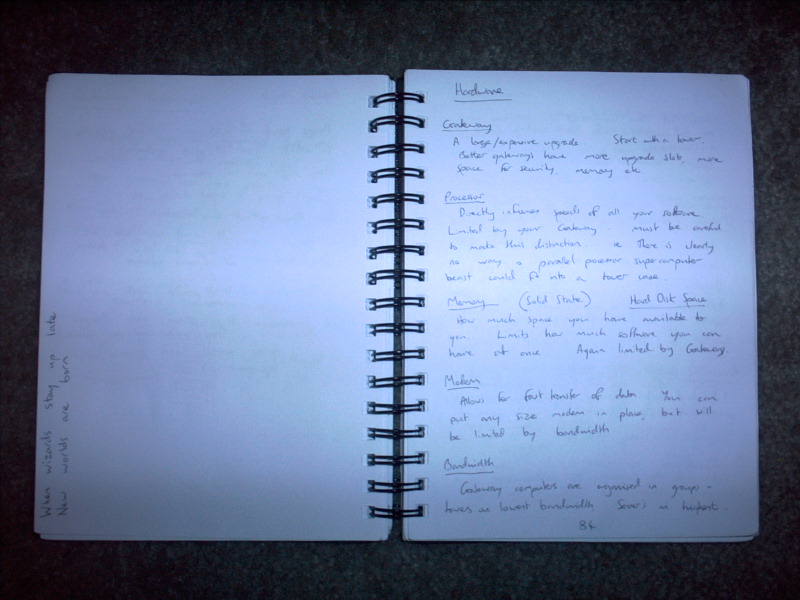 When wizards stay up late
New worlds are born
Hardware
Gateway
A large/expensive upgrade Start with a tower.
Better gateways have more upgrade slots, more
space for security, memory etc
Processor
Directly influences speeds of all your software
Limited by your Gateway. must be careful
to make this distinction. ie There is clearly
no way a parallel processor supercomputer
beast could fit into a tower case.
Memory (Solid State) Hard Disk Space
How much space you have available to
you Limits how much software you can
have at once Again limited by Gateway.
Modem
Allows for fast transfer of data You can
put any size modem in place, but will
be limited by bandwidth
Bandwidth
Gateway computers are organised in groups -
towers on lowest bandwidth Servers on highest.
84